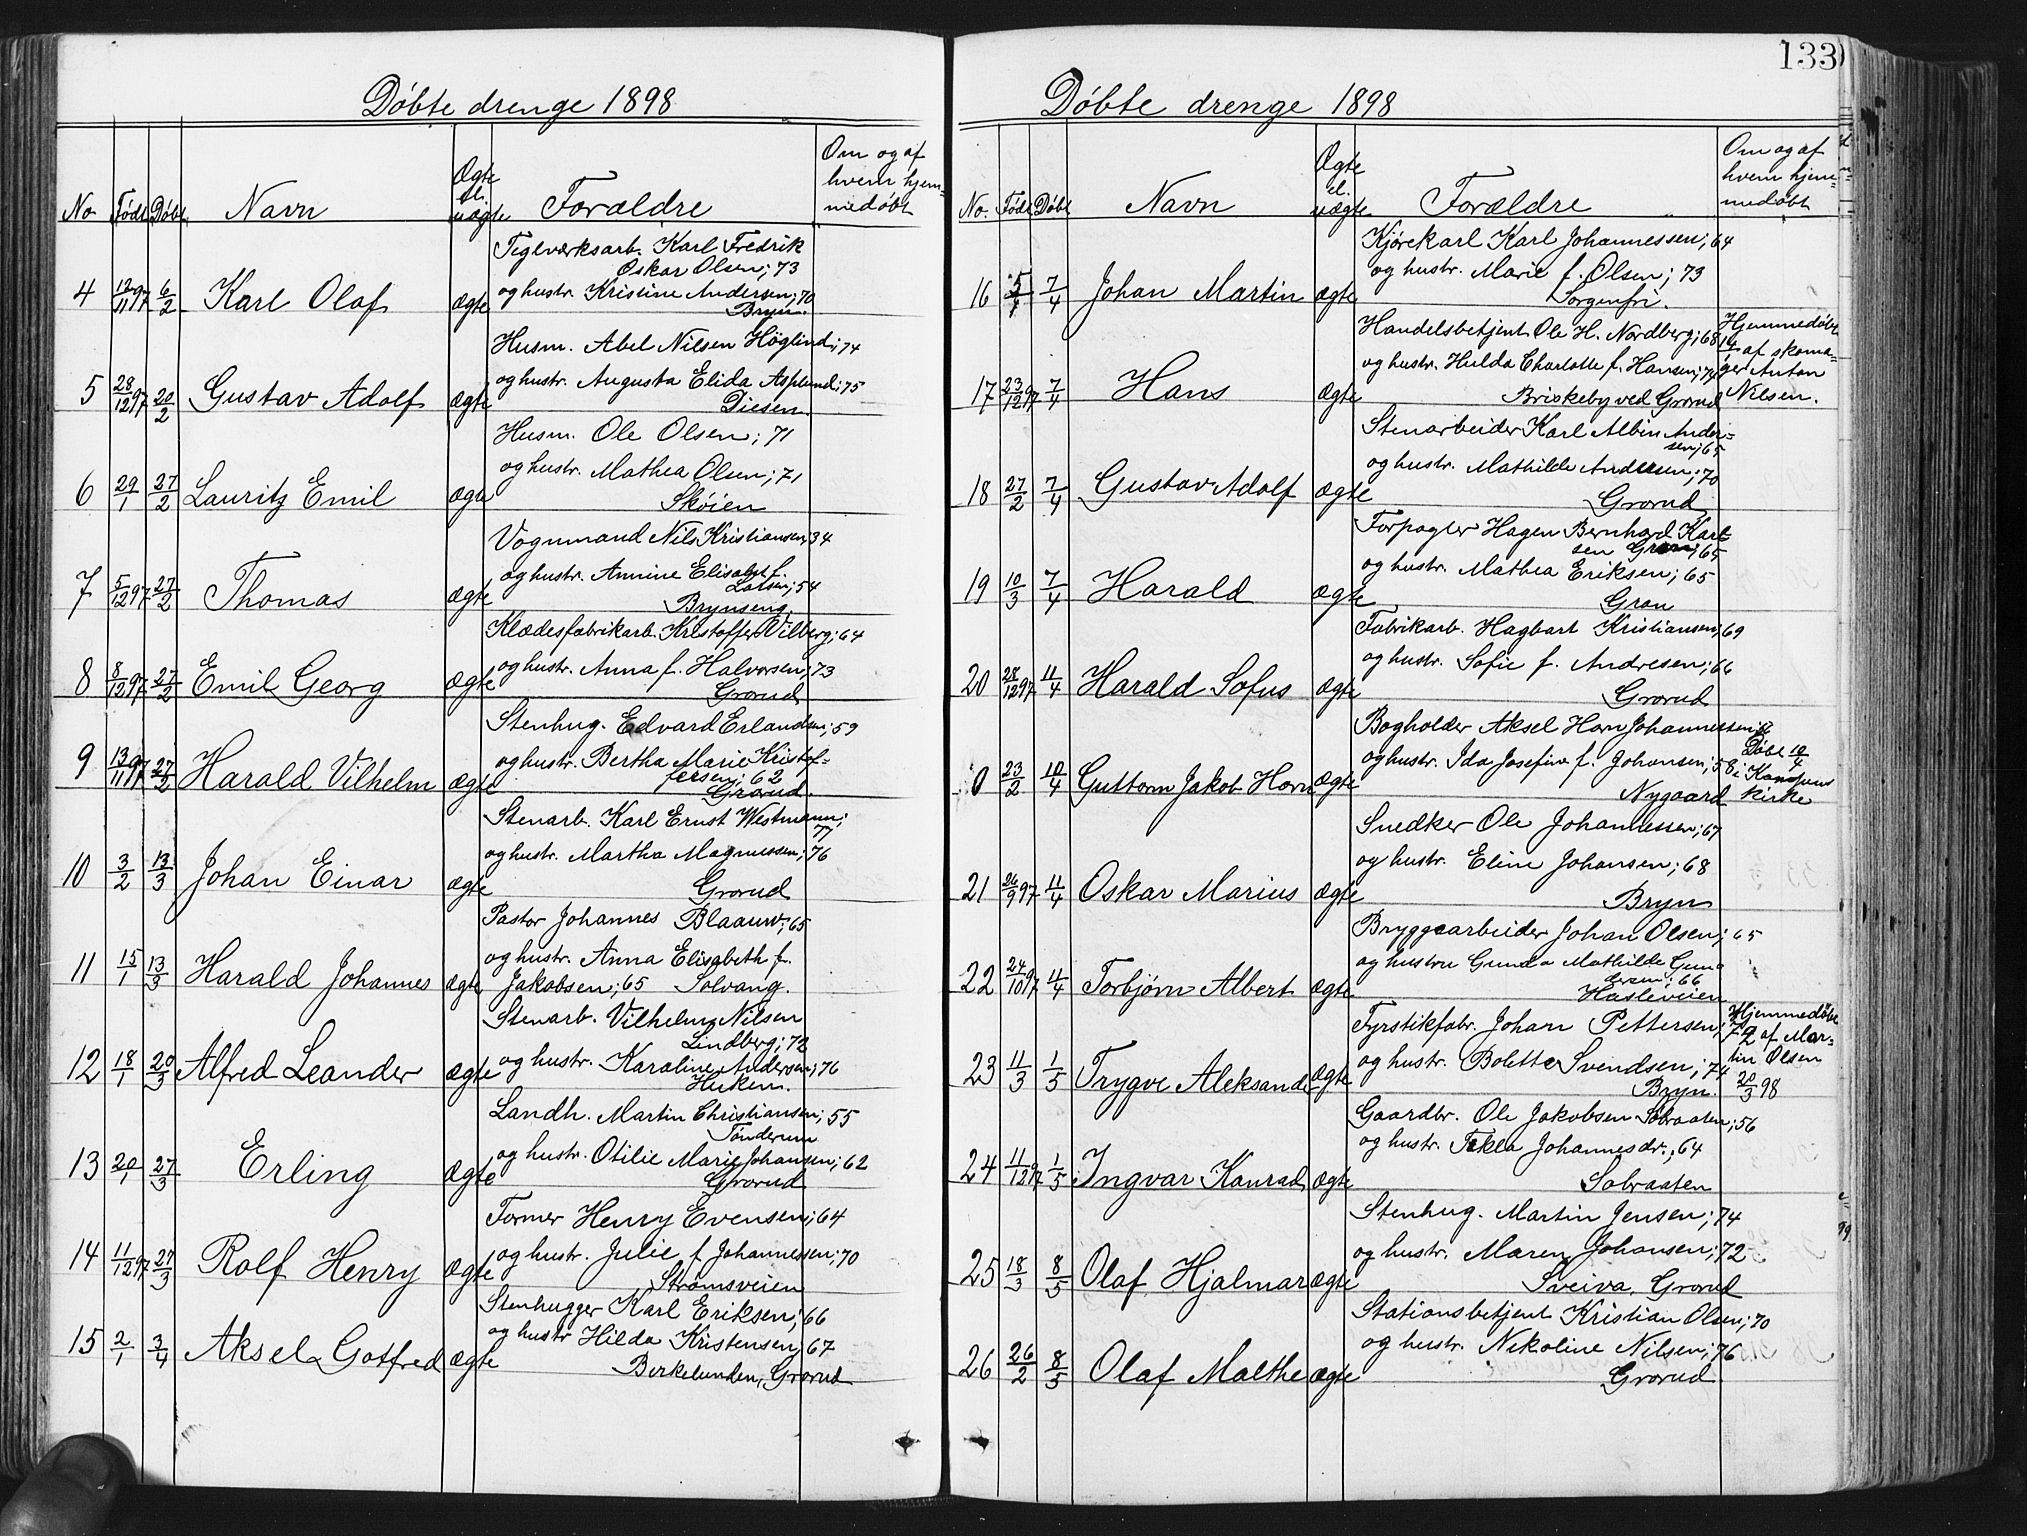 Døbte drenge 1898
No Født Døbt Navn Ægte el. uægte Forældre Om og af hvem hjem= medøbt
Teglværksarb. Karl Fredrik
Oskar Olsen; 73
4 12/11 97 6/2 Karl Olaf ægte og hustr. Kristine Andersen; 70
Bryn.
Husm. Abel Nilsen Höglind; 74
5 28/12 97 20/2 Gustav Adolf ægte og hustr. Augusta Elida Asplund; 75
Diesen
Husm. Ole Olsen; 71
6 29/1 27/2 Lauritz Emil ægte og hustr. Mathea Olsen; 71
Skøien
Vognmand Nils Kristiansen, 34
7 5/12 97 27/2 Thomas ægte og hustr. Annine Elisabet f.
Larsen; 54
Brynseng.
Klædesfabrikarb. Kristoffer Vilberg; 64
8 8/12 97 27/2 Emil Georg ægte og hustr. Anna f. Halvorsen; 73
Grorud
Stenhug. Edvard Erlandsen; 59
9 13/11 97 27/2 Harald Vilhelm ægte og hustr. Bertha Marie Kristof=
fersen; 62
Grorud.
Stenarb. Karl Ernst Westmann;
77
10 3/2 13/3 Johan Einar ægte og hustr. Martha Magnussen; 76
Grorud
Pastor Johannes Blaauw; 65
11 15/1 13/3 Harald Johannes ægte og hustr. Anna Elisabeth f.
Jakobsen; 65 Solvang.
Stenarb. Vilhelm Nilsen
Lindberg; 72
12 18/1 20/3 Alfred Leander ægte og hustr. Karoline Andersen; 76
Huken.
Landh. Martin Christiansen; 55
Tønderum
13 20/1 27/3 Erling ægte og hustr. Otilie Marie Johansen; 62
Grorud
Former Henry Evensen; 64
14 11/12 97 27/3 Rolf Henry ægte og hustr. Julie f Johannessen; 70
Strømsveien
Stenhugger Karl Eriksen; 66
15 2/1 3/4 Aksel Gotfred ægte og hustr Hilda Kristensen; 67
Birkelunden, Grorud
133
Døbte drenge 1898
No. Født Døbt Navn Ægte el. uægte Forældre Om og af hvem hjem= medøbt
Kjørekarl Karl Johannessen; 64
16 5/1 7/4 Johan Martin ægte og hustr. Marie f. Olsen; 73
Sorgenfri.
Handelsbetjent Ole H. Nordberg; 68 Hjemmedøbt
17 23/12 97 7/4 Hans ægte og hustr. Hulda Charlotte f. Hansen; af skoma=
ger Anton
Briskeby ved Grorud Nilsen.
Stenarbeider Karl Albin Ander=
sen; 65
18 27/2 7/4 Gustav Adolf ægte og hustr. Mathilde Andersen; 70
Grorud
Forpagter Hagen Bernhard Karl=
sen Gran; 65
19 10/3 7/4 Harald ægte og hustr. Mathea Eriksen; 65
Gran
Fabrikarb. Hagbart Kristiansen; 69
20 28/12 97 11/4 Harald Sofus ægte og hustr. Sofie f. Andresen; 66
Grorud
Bogholder Aksel Horn Johannessen;
0 23/2 10/4 Guttorm Jakob Horn ægte og hustr. Ida Josefine f. Johansen; 58 Døbt 10/4
i Kampens
Nygaard kirke
Snedker Ole Johannessen; 67
21 26/9 97 11/4 Oskar Marius ægte og hustr. Eline Johansen; 68
Bryn
Bryggearbeider Johan Olsen; 65
22 24/10 97 11/4 Torbjørn Albert ægte og hustru Gunda Mathilde Gun=
dersen; 66
Hasleveien
Fyrstikfabr. Johan Pettersen; 72 Hjemmedøbt
af Mar=
23 11/3 1/5 Trygve Aleksander ægte og hustr. Bolette Svendsen; 74 tin Olsen
Bryn. 20/3 98
Gaardbr. Ole Jakobsen Solvraaten; 56
24 11/12 97 1/5 Ingvar Konrad ægte og hustr. Tekla Johannesdr.; 64
Solvraaten
Stenhug. Martin Jensen; 74
25 18/3 8/5 Olaf Hjalmar ægte og hustr. Maren Johansen; 72
Sveiva, Grorud
Stationsbetjent Kristian Olsen; 70
26 26/2 8/5 Olaf Malthe ægte og hustr. Nikoline Nilsen; 76
Grorud